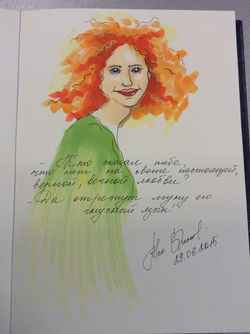 - Кто сказал тебе,
что нет на свете настоящей,
верной, вечной любви?
- Да отрежут лгуну его
гнусный язык!
29.06.2015